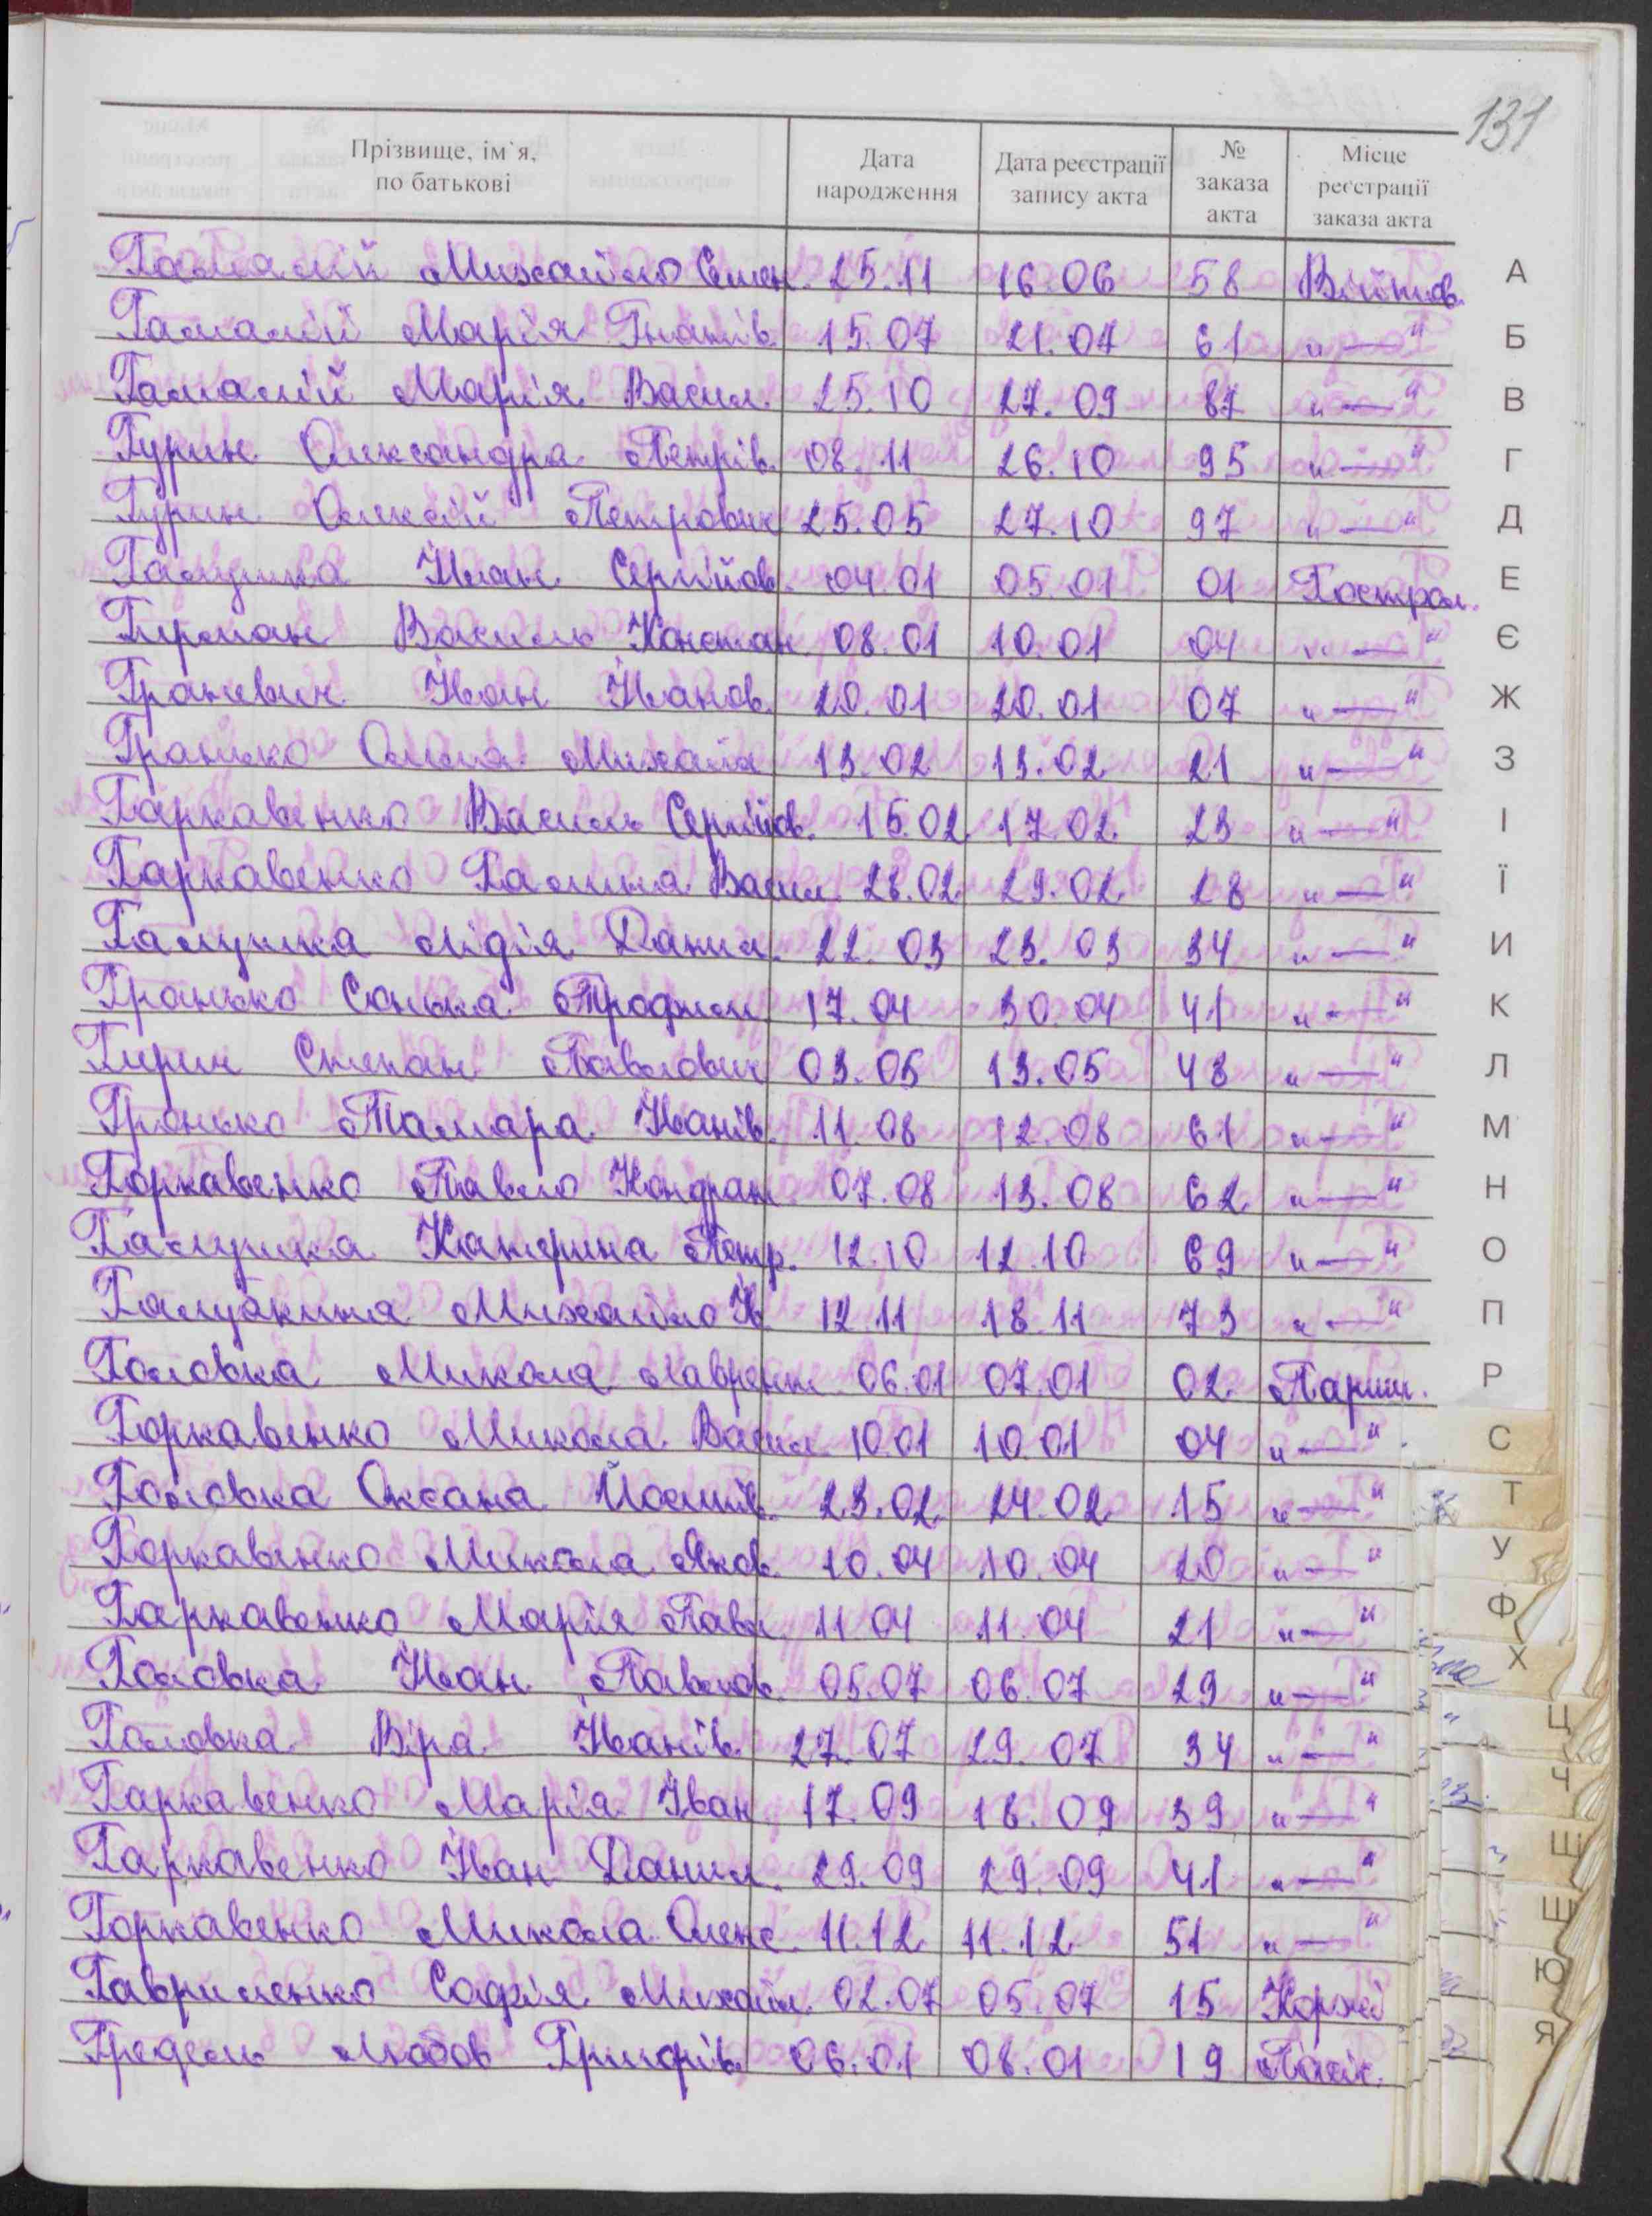 131
Прізвище, ім`я, по батькові Дата народження Дата реєстрації запису акта № заказа акта Місце реєстрації заказа акта
Гамалій Михайло Семен. 25.11 16.06 58 Війтов.
Гамалій Марія Гнатів. 15.07 21.07 61 "—"
Гамалій Марія Васил. 25.10 27.09 87 "—"
Гурин Олександра Петрів. 08.11 26.10 95 "—"
Гурин Олексій Петрович 25.05 27.10 97 "—"
Галушка Іван Сергійов. 04.01 05.01 01 Гострол.
Герман Василь Констан. 08.01 10.01 04 "—"
Граневич Іван Іванов. 20.01 20.01 07 "—"
Гранько Ольга Михайл 13.02 13.02 21 "—"
Гаркавенко Василь Сергійов. 15.02 17.02. 23 "—"
Гаркавенко Галина Васил. 28.02. 29.02. 28 "—"
Галушка Лідія Данил. 22.03 23.03 34 "—"
Гранько Санька Трофим 17.04 30.04 41 "—"
Степан Павлович 03.05 13.05 48 "—"
Гронько Тамара Іванів. 11.08 12.08 61 "—"
Горкавенко Павло Кондрат 07.08 13.08 62 "—"
Галушка Катерина Петр. 12.10 12.10 69 "—"
Михайло Ів. 12.11 18.11 73 "—"
Головка Микола Лаврент 06.01 07.01 02 Париш.
Горкавенко Микола Васил 10.01 10.01 04 "—"
Головка Оксана Йосипів. 23.02. 24.02 15 "—"
Горкавенко Микола Яков. 10.04 10.04 20 "—"
Гаркавенко Марія Павл. 11.04 11.04 21 "—"
Головка Іван Павлов. 05.07 06.07 29 "—"
Головка Віра Іванів. 27.07 29.07 34 "—"
Гаркавенко Марія Іван 17.09 18.09 39 "—"
Гаркавенко Іван Данил. 29.09 29.09 41 "—"
Горкавенко Микола Олекс. 11.12 11.12 51 "—"
Гавриленко Софія Михайл. 02.07 05.07 15 Коржі
Гредель Любов Григорів. 06.01 08.01 19 Пасіч.
А
Б
В
Г
Д
Е
Є
Ж
З
І
Ї
И
К
Л
М
Н
О
П
Р
С
Т
У
Ф
Х
Ц
Ч
Ш
Щ
Ю
Я